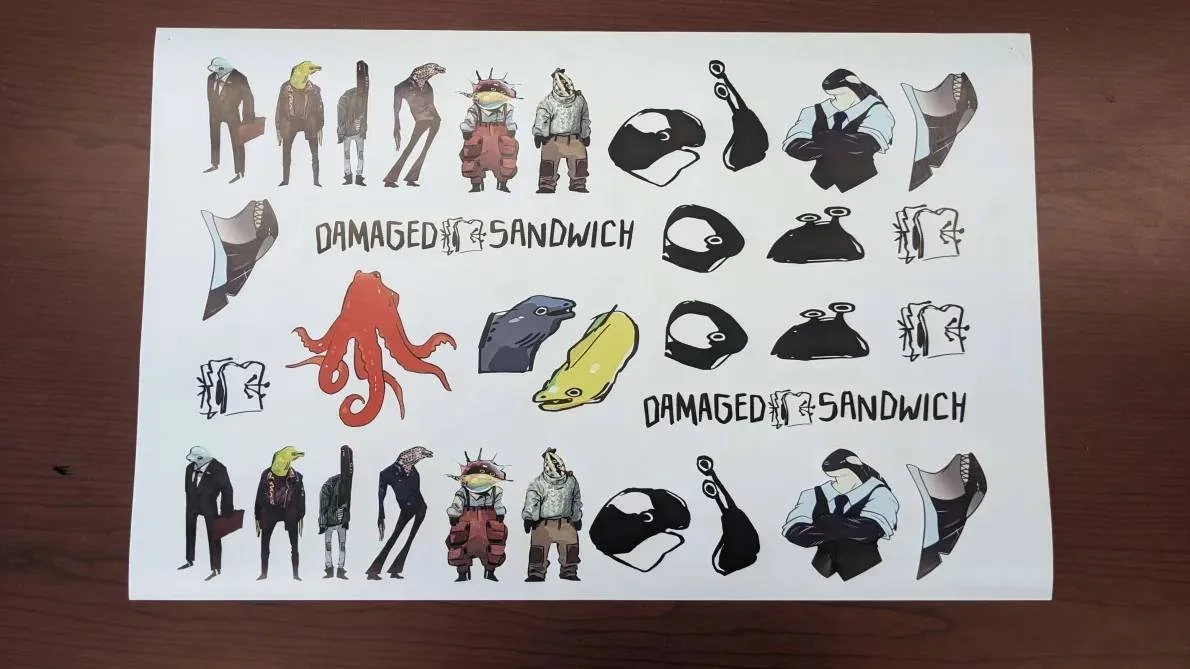 DAMAGED SANDWICH
DAMAGED SANDWICH